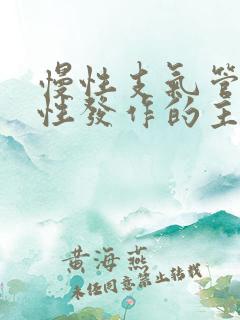 慢性支氣管
性發作的主
黃海燕
未經同意禁止轉載